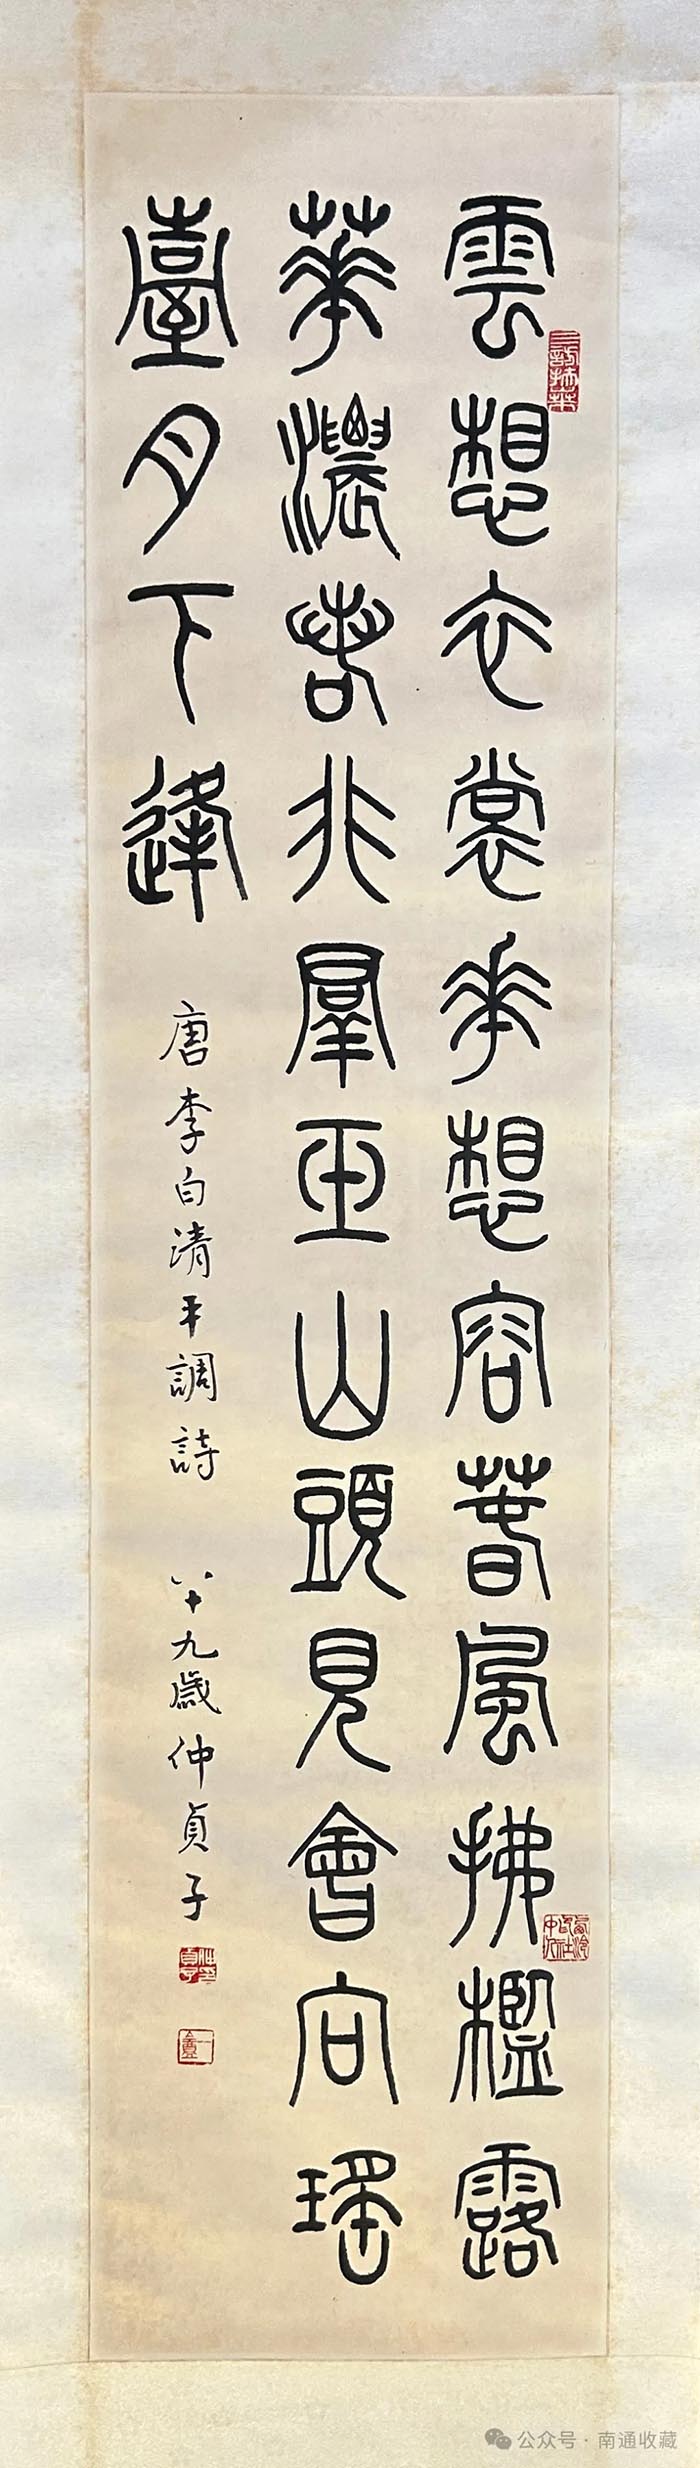 雲想衣裳花想容萅風拂檻露
華濃若非羣玉山頭見會向瑤
臺月下逢
唐李白清平調詩 八十九歲仲貞子
公众号·南通收藏